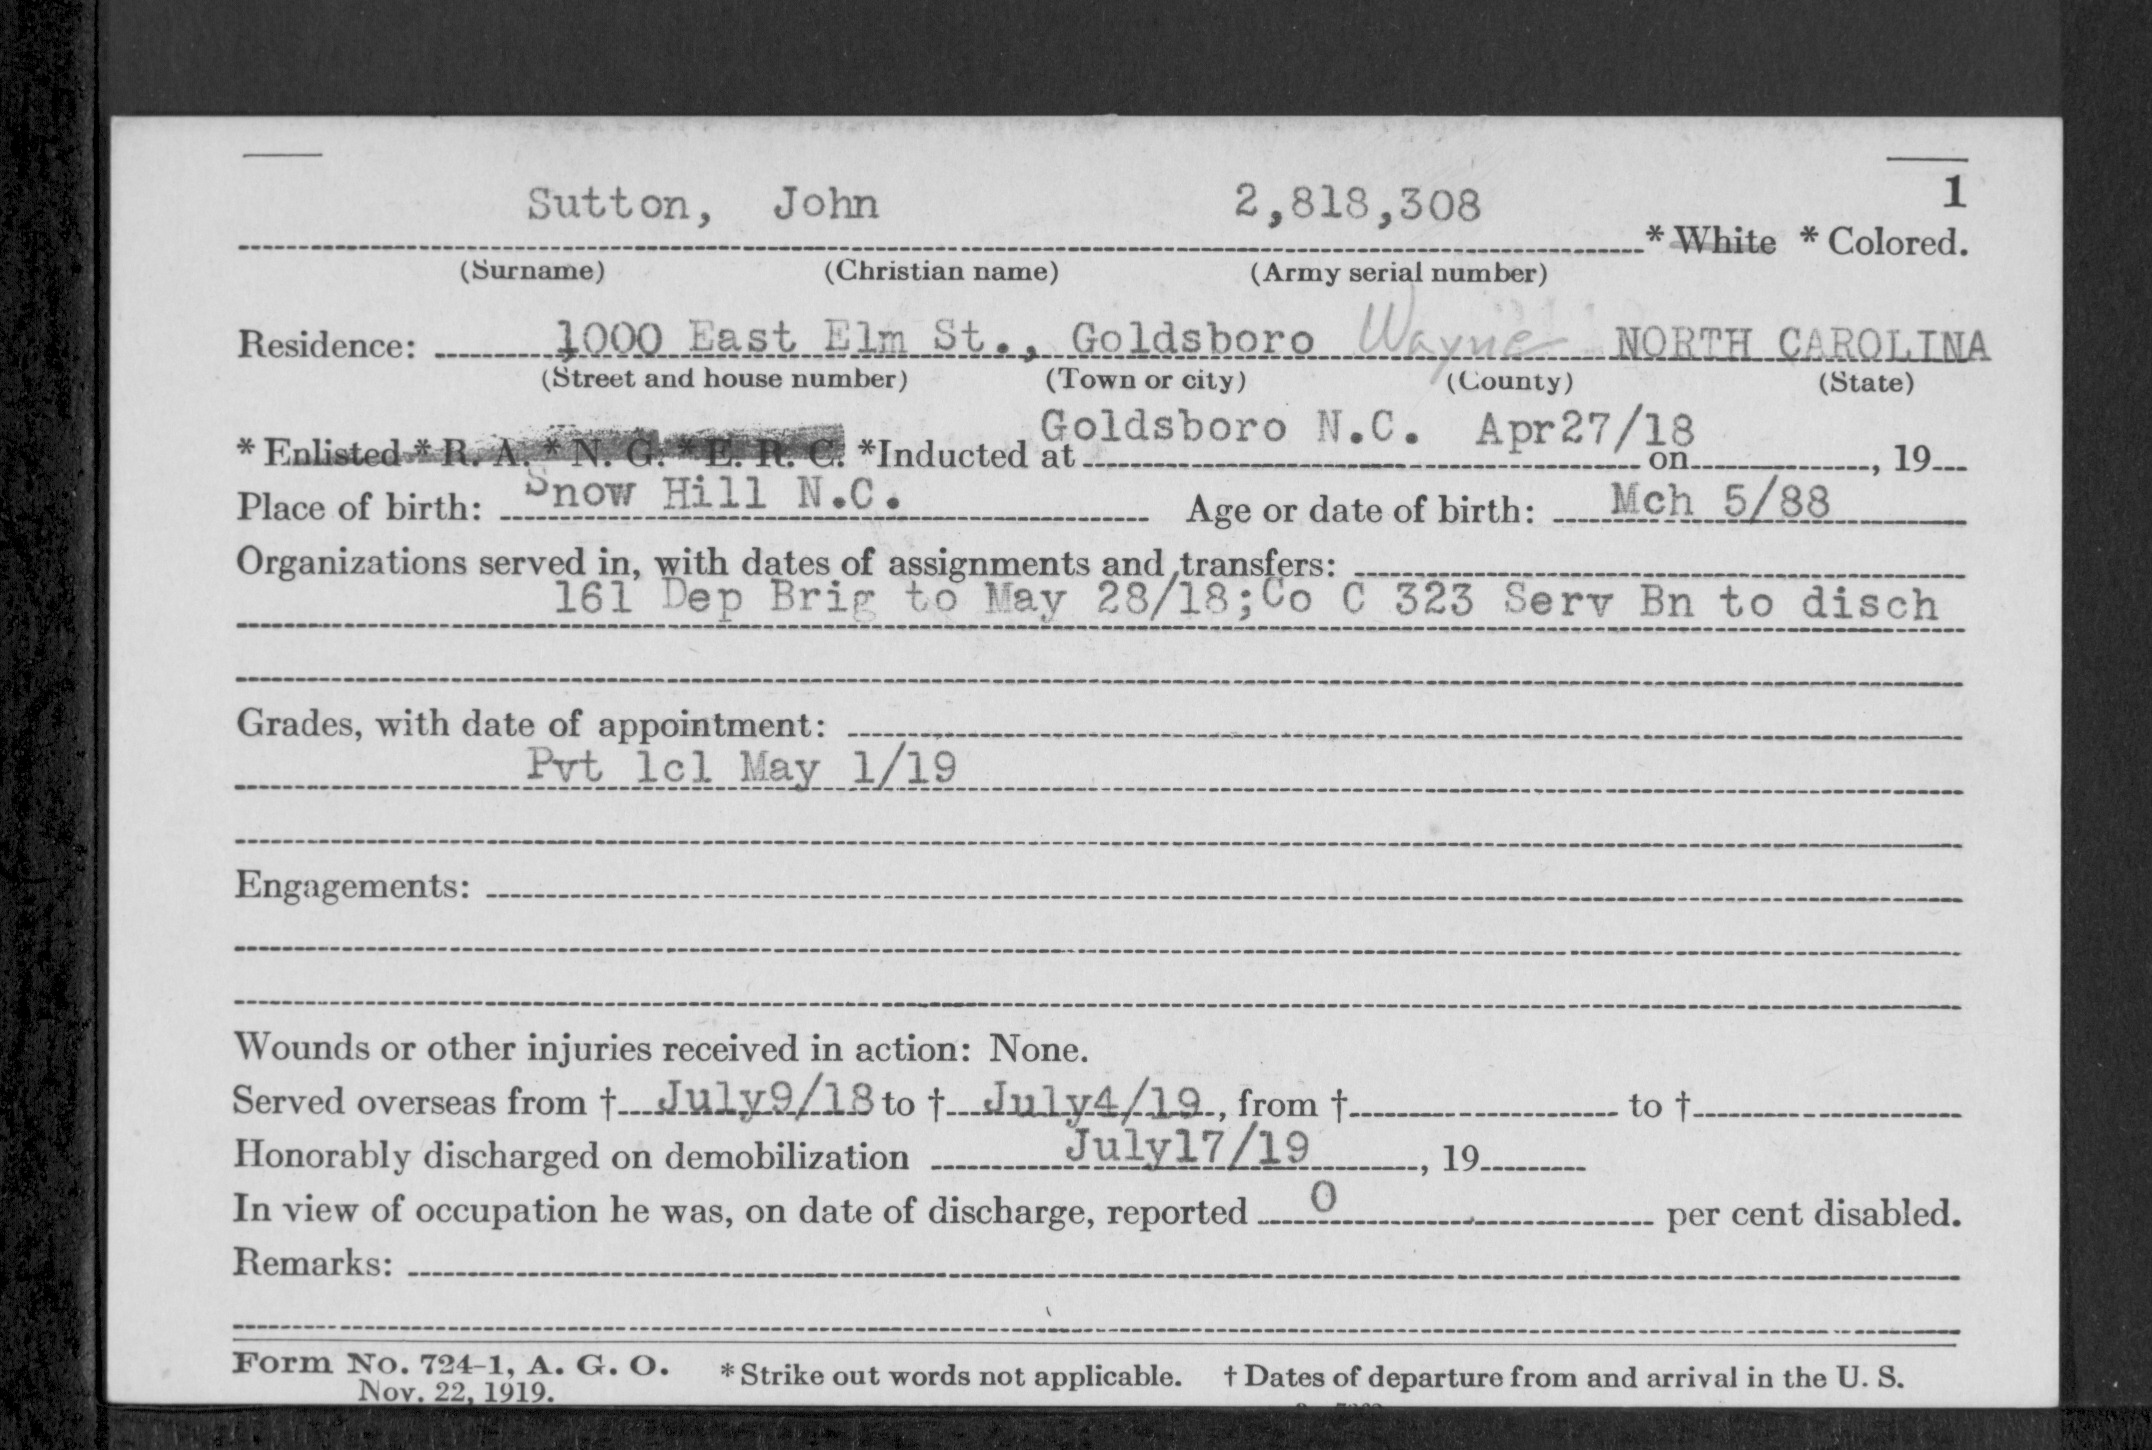 1
Sutton, John 2,818,308
* White * Colored.
(Surname) (Christian name) (Army serial number)
Residence: 1000 East Elm St., Goldsboro Wayne NORTH CAROLINA
(Street and house number) (Town or city) (County) (State)
Goldsboro N.C. Apr27/18
* Enlisted * R. A. * N. G. * E. R. C. *Inducted at on , 19
Place of birth: Snow Hill N.C. Age or date of birth: Mch 5/88
Organizations served in, with dates of assignments and transfers:
161 Dep Brig to May 28/18;Co C 323 Serv Bn to disch
Grades, with date of appointment:
Pvt 1cl May 1/19
Engagements:
Wounds or other injuries received in action: None.
Served overseas from † July9/18 to † July4/19, from † to †
Honorably discharged on demobilization July17/19, 19
In view of occupation he was, on date of discharge, reported 0 per cent disabled.
Remarks:
Form No. 724-1, A. G. O. * Strike out words not applicable. † Dates of departure from and arrival in the U. S.
Nov. 22, 1919.